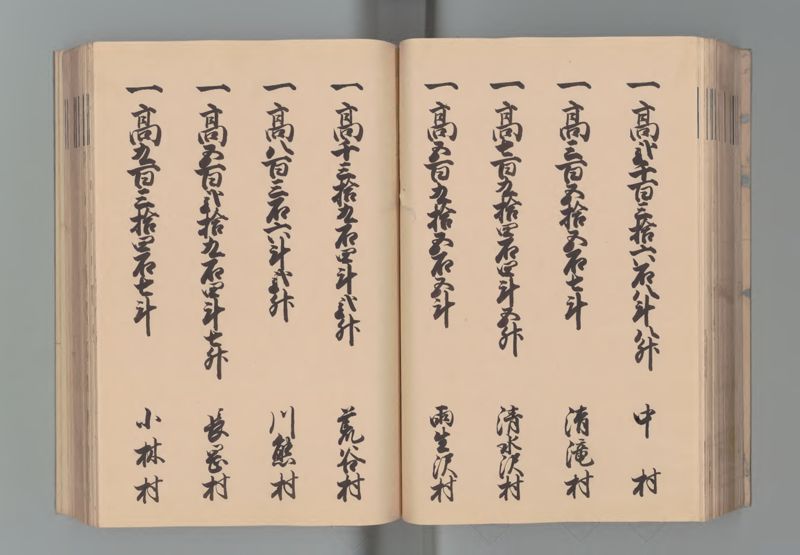 一高弐千百三拾六石八斗八升 中村
一高三百五拾五石七斗 清滝村
一高七百九拾四石四斗五升 清水沢村
一高五百九拾五石五斗 雨生沢村
一高千三拾九石四斗弐升 荒谷村
一高八百三石六斗弐升 川熊村
一高五百弐拾九石四斗七升 長岡村
一高九百三拾四石七斗 小林村